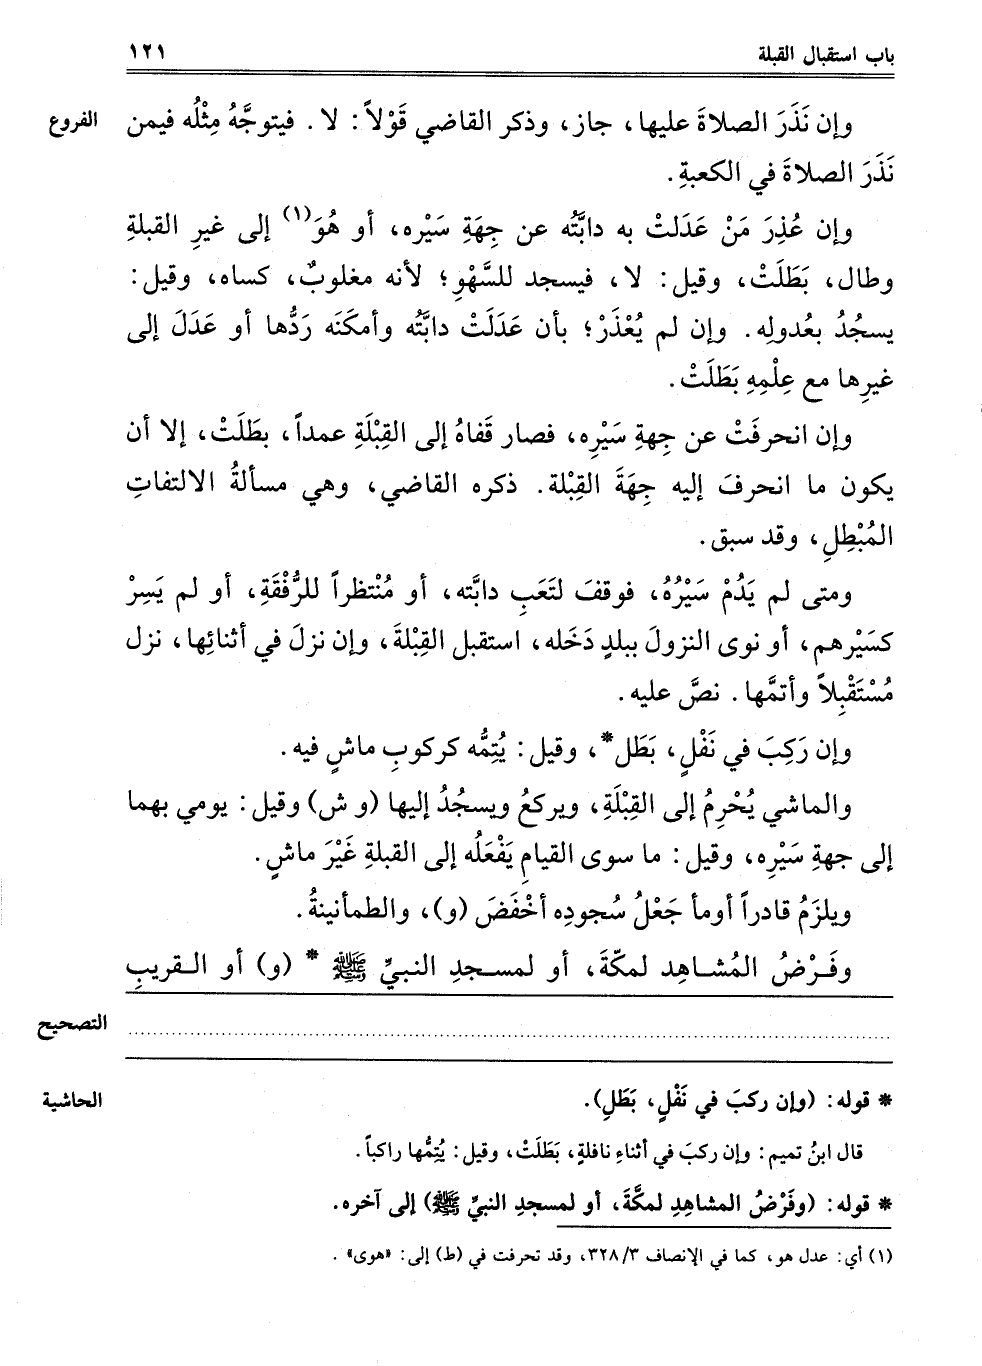 باب استقبال القبلة
١٢١
وإن نَذَرَ الصلاةَ عليها، جاز، وذكر القاضي قَوْلاً: لا. فيتوجَّهُ مِثْلُه فيمن
الفروع
نَذَرَ الصلاةَ في الكعبةِ.
وإن عُذِرَ مَنْ عَدَلتْ به دابَّتُه عن جِهَةِ سَيْره، أو هُوَ(١) إلى غيرِ القبلةِ
وطال، بَطَلَتْ، وقيل: لا، فيسجد للسَّهْوِ؛ لأنه مغلوبٌ، كساه، وقيل:
يسجُدُ بعُدولِه. وإن لم يُعْذَرْ؛ بأن عَدَلَتْ دابَّتُه وأمكَنَه رَدُّها أو عَدَلَ إلى
غيرِها مع عِلْمِهِ بَطَلَتْ.
وإن انحرفَتْ عن جِهةِ سَيْرِه، فصار قَفاهُ إلى القِبْلَةِ عمداً، بطَلَتْ، إلا أن
يكون ما انحرفَ إليه جِهَةَ القِبْلة. ذكره القاضي، وهي مسألةُ الالتفاتِ
المُبْطِلِ، وقد سبق.
ومتى لم يَدُمْ سَيْرُهُ، فوقفَ لتَعَبِ دابَّته، أو مُنْتظراً للرُّفْقَةِ، أو لم يَسِرْ
كسَيْرهم، أو نوى النزولَ ببلدٍ دَخَله، استقبل القِبْلةَ، وإن نزلَ في أثنائِها، نزل
مُسْتَقْبِلاً وأتمَّها. نصَّ عليه.
وإن رَكِبَ في نَفْلٍ، بَطَل*، وقيل: يُتِمُّه كركوبِ ماشٍ فيه.
والماشي يُحْرِمُ إلى القِبْلَةِ، ويركعُ ويسجُدُ إليها (و ش) وقيل: يومي بهما
إلى جهةِ سَيْرِه، وقيل: ما سوى القيامِ يَفْعَلُه إلى القبلةِ غَيْرَ ماشٍ.
ويلزَمُ قادراً أومأ جَعْلُ سُجودِه أخْفَضَ (و)، والطمأنينةُ.
وفَـرْضُ المُشـاهِد لمكّةَ، أو لمسـجدِ النبيِّ ﷺ * (و) أو القريبِ
التصحيح
* قوله: (وإن ركبَ في نَفْلٍ، بَطَلِ).
الحاشية
قال ابنُ تميم: وإن ركبَ في أثناءِ نافلةٍ، بَطَلَتْ، وقيل: يُتِمُّها راكباً.
* قوله: (وفَرْضُ المشاهِدِ لمكَّةَ، أو لمسجدِ النبيِّ ﷺ) إلى آخره.
(١) أي: عدل هو، كما في الإنصاف ٣٢٨/٣، وقد تحرفت في (ط) إلى: «هوى».